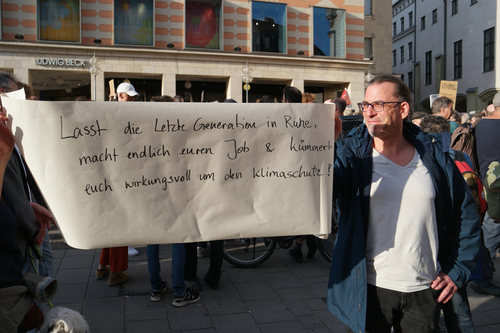 LUDWIG BECK
Lasst die Letzte Generation in Ruhe,
macht endlich euren Job & kümmert
euch wirkungsvoll um den Klimaschutz!